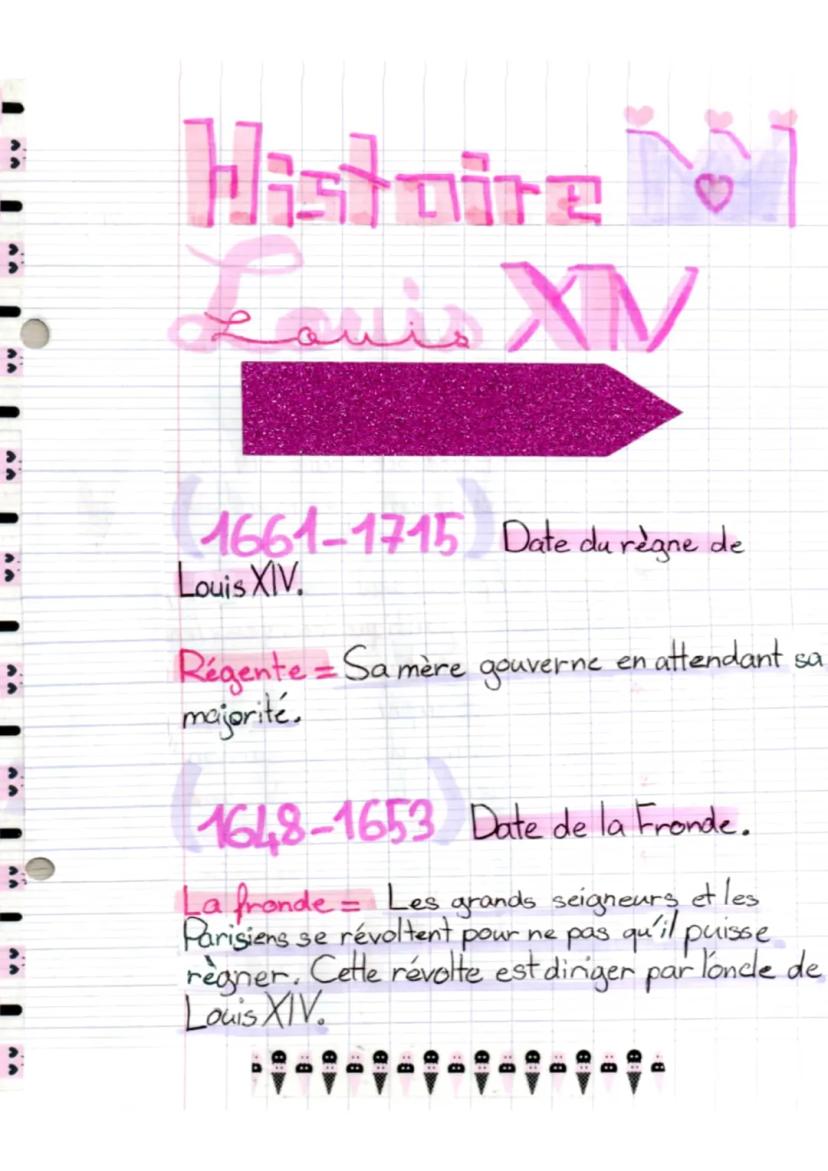 Histoire
Louis XIV
(1661-1715) Date du règne de
Louis XIV.
Régente = Sa mère gouverne en attendant sa
majorité.
(1648-1653) Date de la Fronde.
La fronde = Les grands seigneurs et les
Parisiens se révoltent pour ne pas qu'il puisse
règner. Cette révolte est diriger par l'oncle de
Louis XIV.